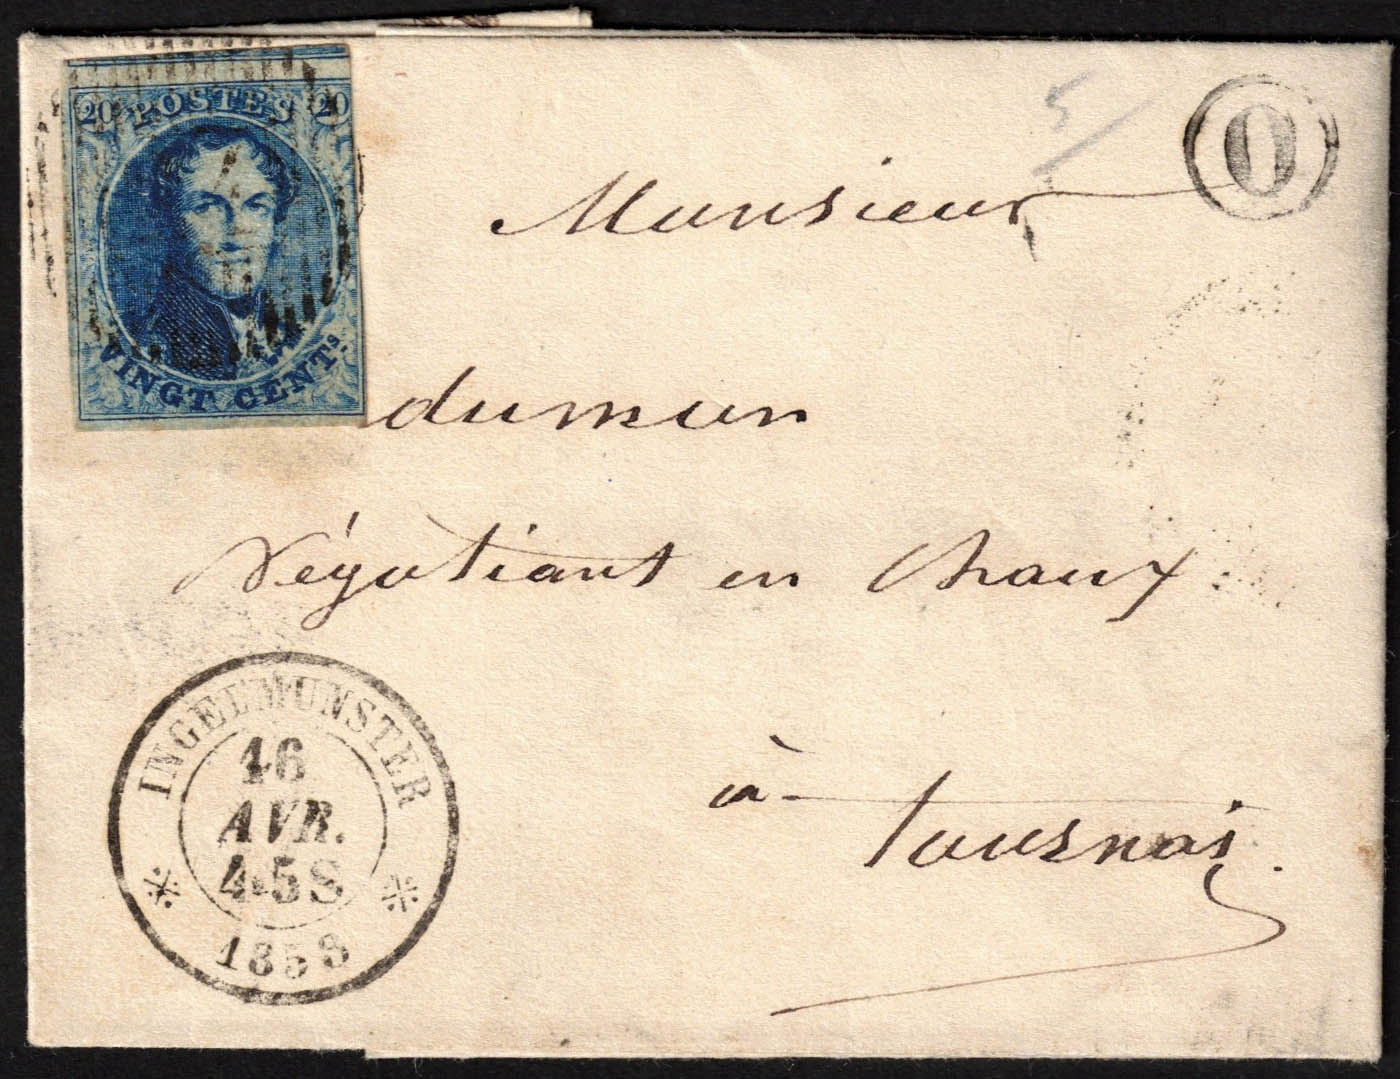 20 POSTES 20
VINGT CENTS.
5/
O
Monsieur
dumon
Négotiant en Chaux
à
tournai.
INGELMUNSTER
16
AVR.
4-5S
1858